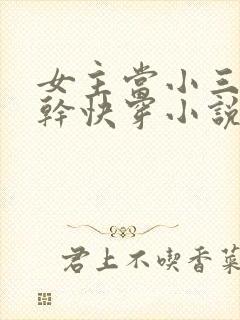 女主當小三
幹快穿小說
君上不喫香菜